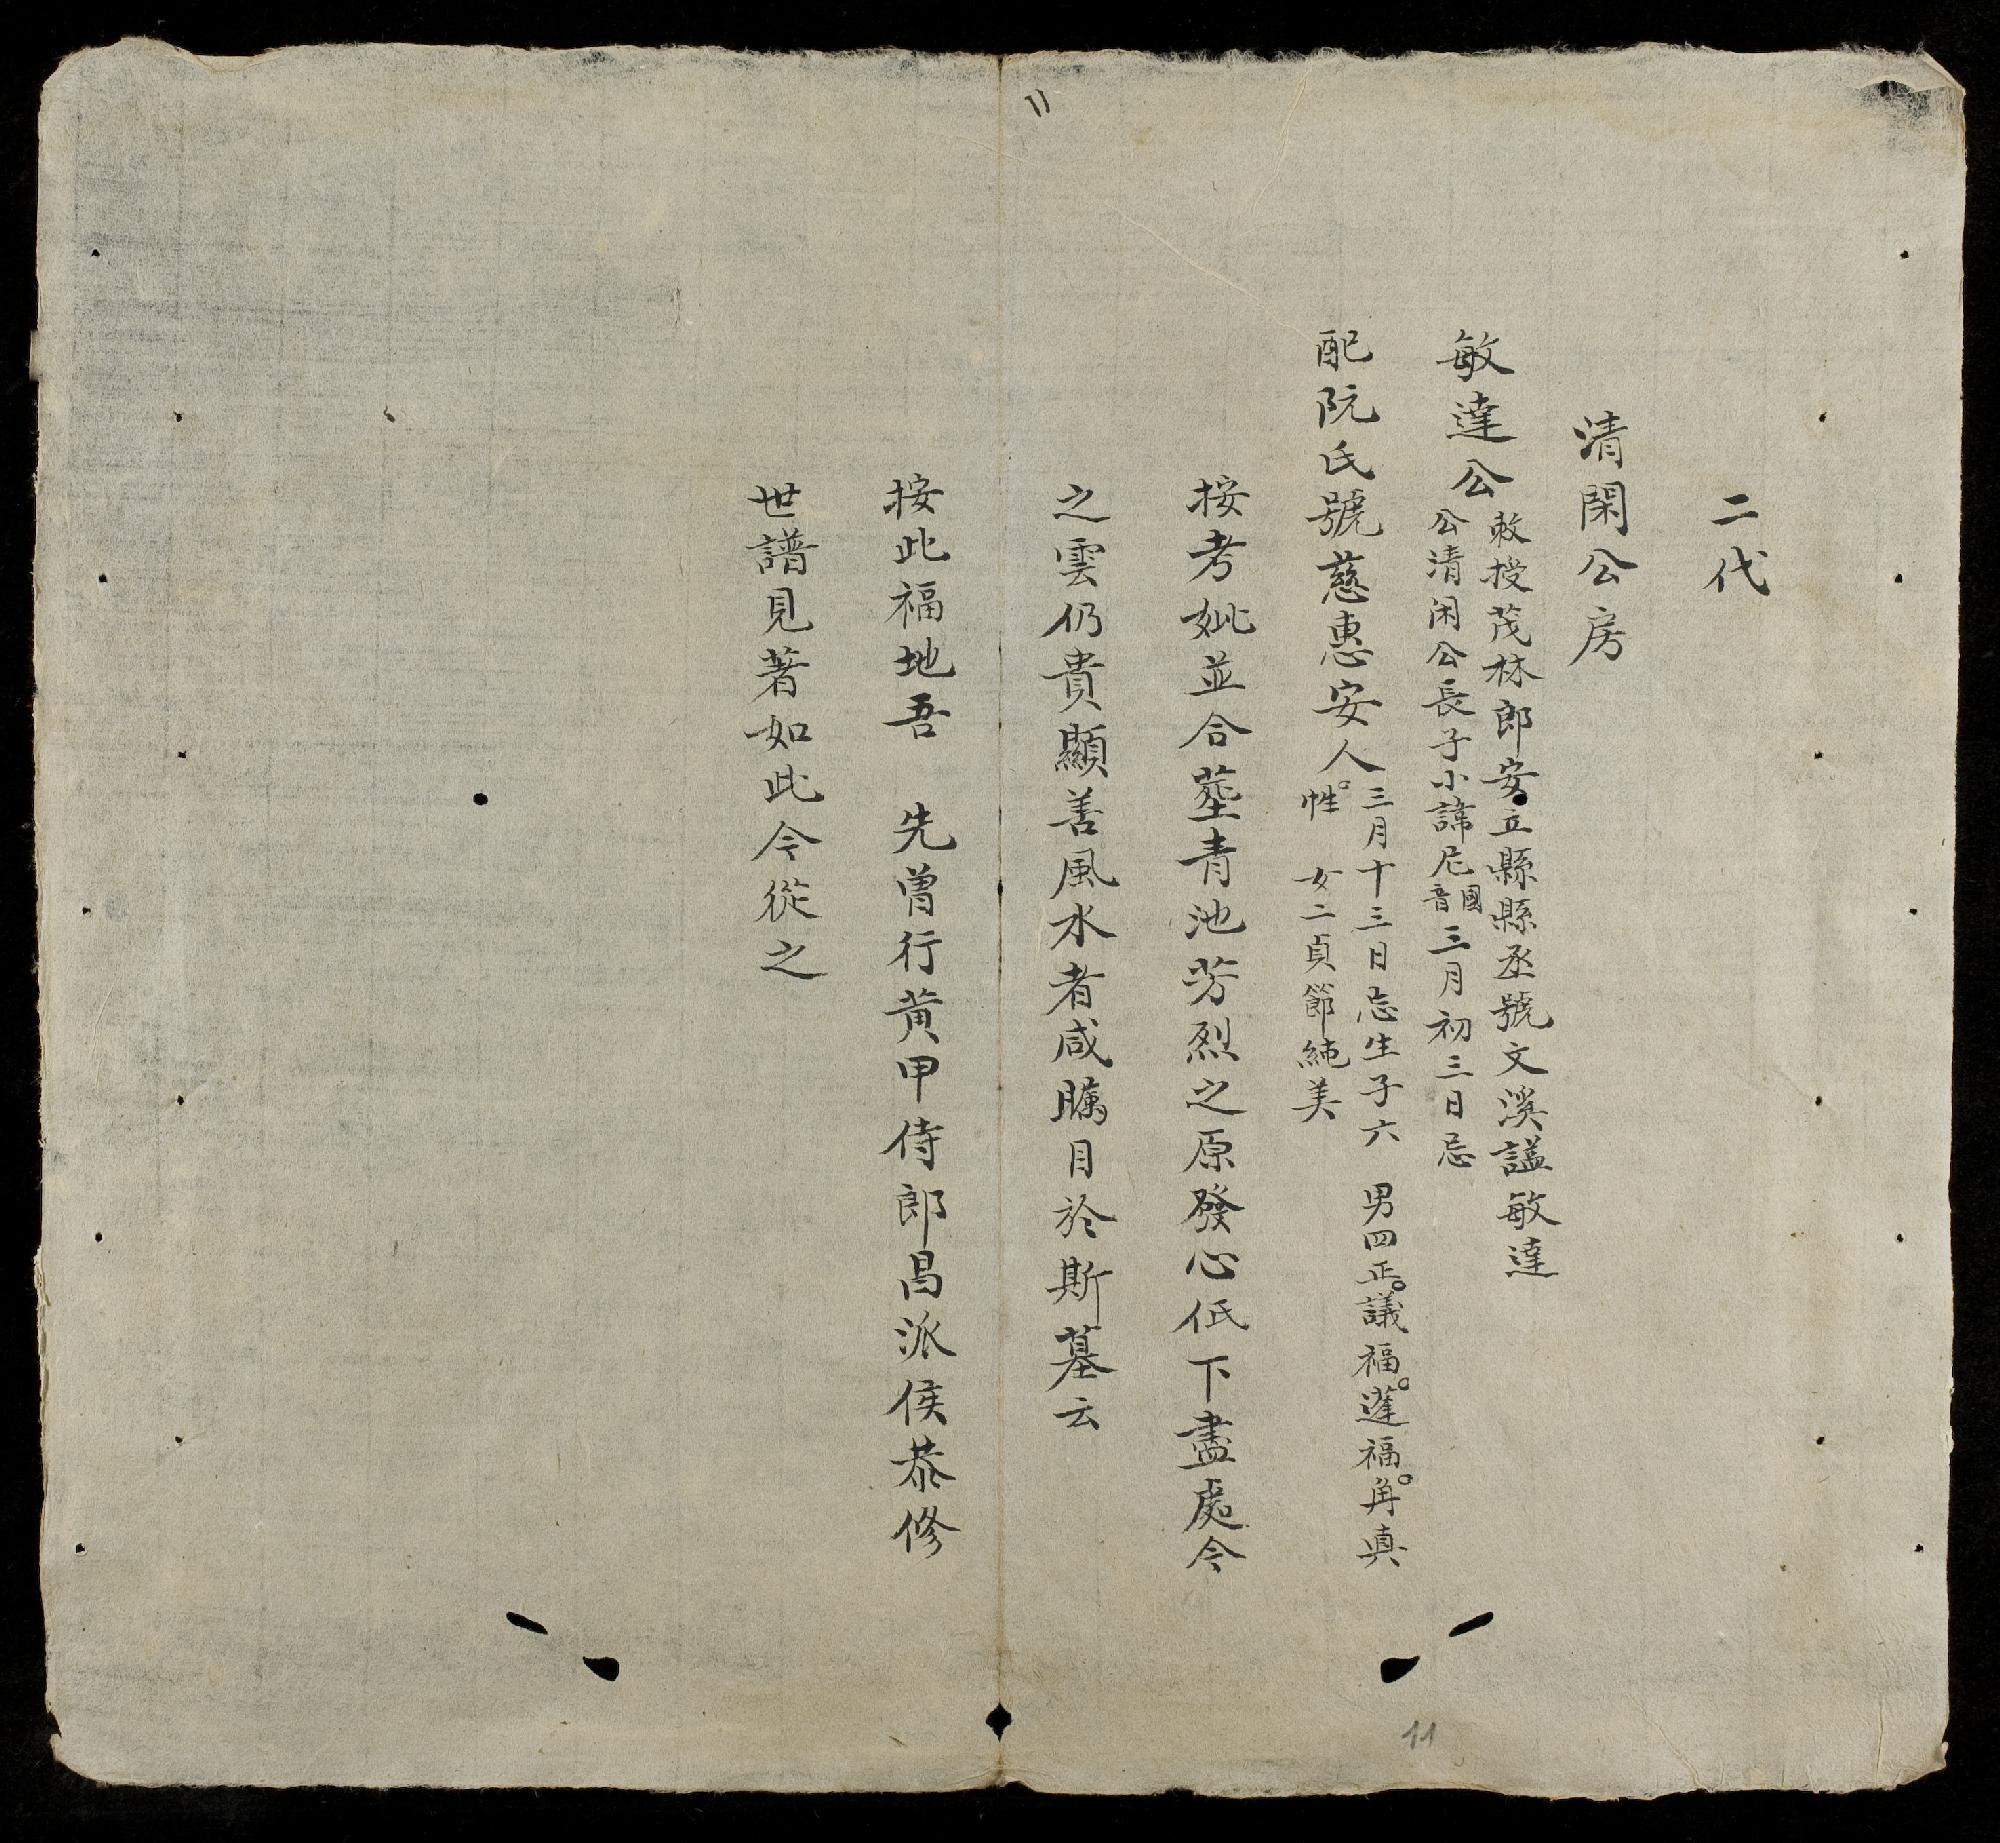 二代
清閑公房
敏達公
敕授茂林郎安立縣縣丞號文溪謚敏達
公清闲公長子小諱尼國音三月初三日忌
配阮氏號慈惠安人
三月十三日忌生子六 男四正。議福。蓬福。角真
性 女二貞節純美
按考妣並合塟青池芳烈之原發心低下盡處今
之雲仍貴顯善風水者咸矚目於斯墓云
按此福地吾 先曾行黄甲侍郎昌派侯恭修
世譜見著如此今從之
11